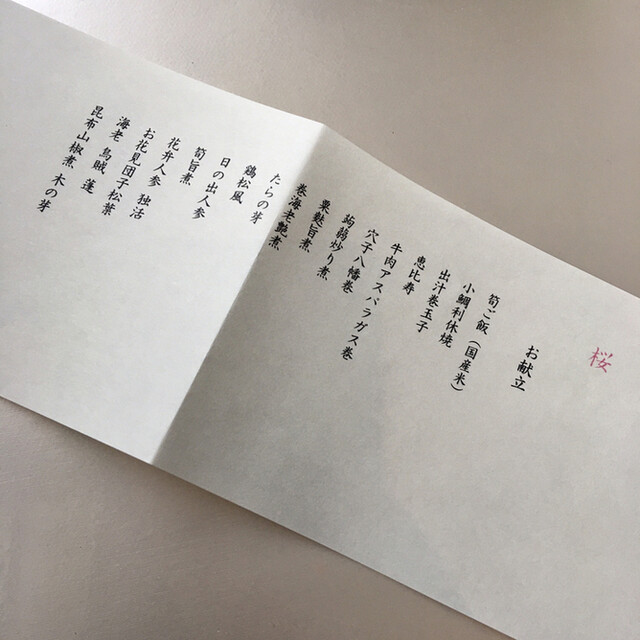 桜
お献立
筍ご飯（国産米）
小鯛利休焼
出汁巻玉子
恵比寿
牛肉アスパラガス巻
穴子八幡巻
蒟蒻炒り煮
粟麩旨煮
巻海老艶煮
たらの芽
鶏松風
日の出人参
筍旨煮
花弁人参
お花見団子松葉
海老 烏賊 蓬
昆布山椒煮 木の芽
独活